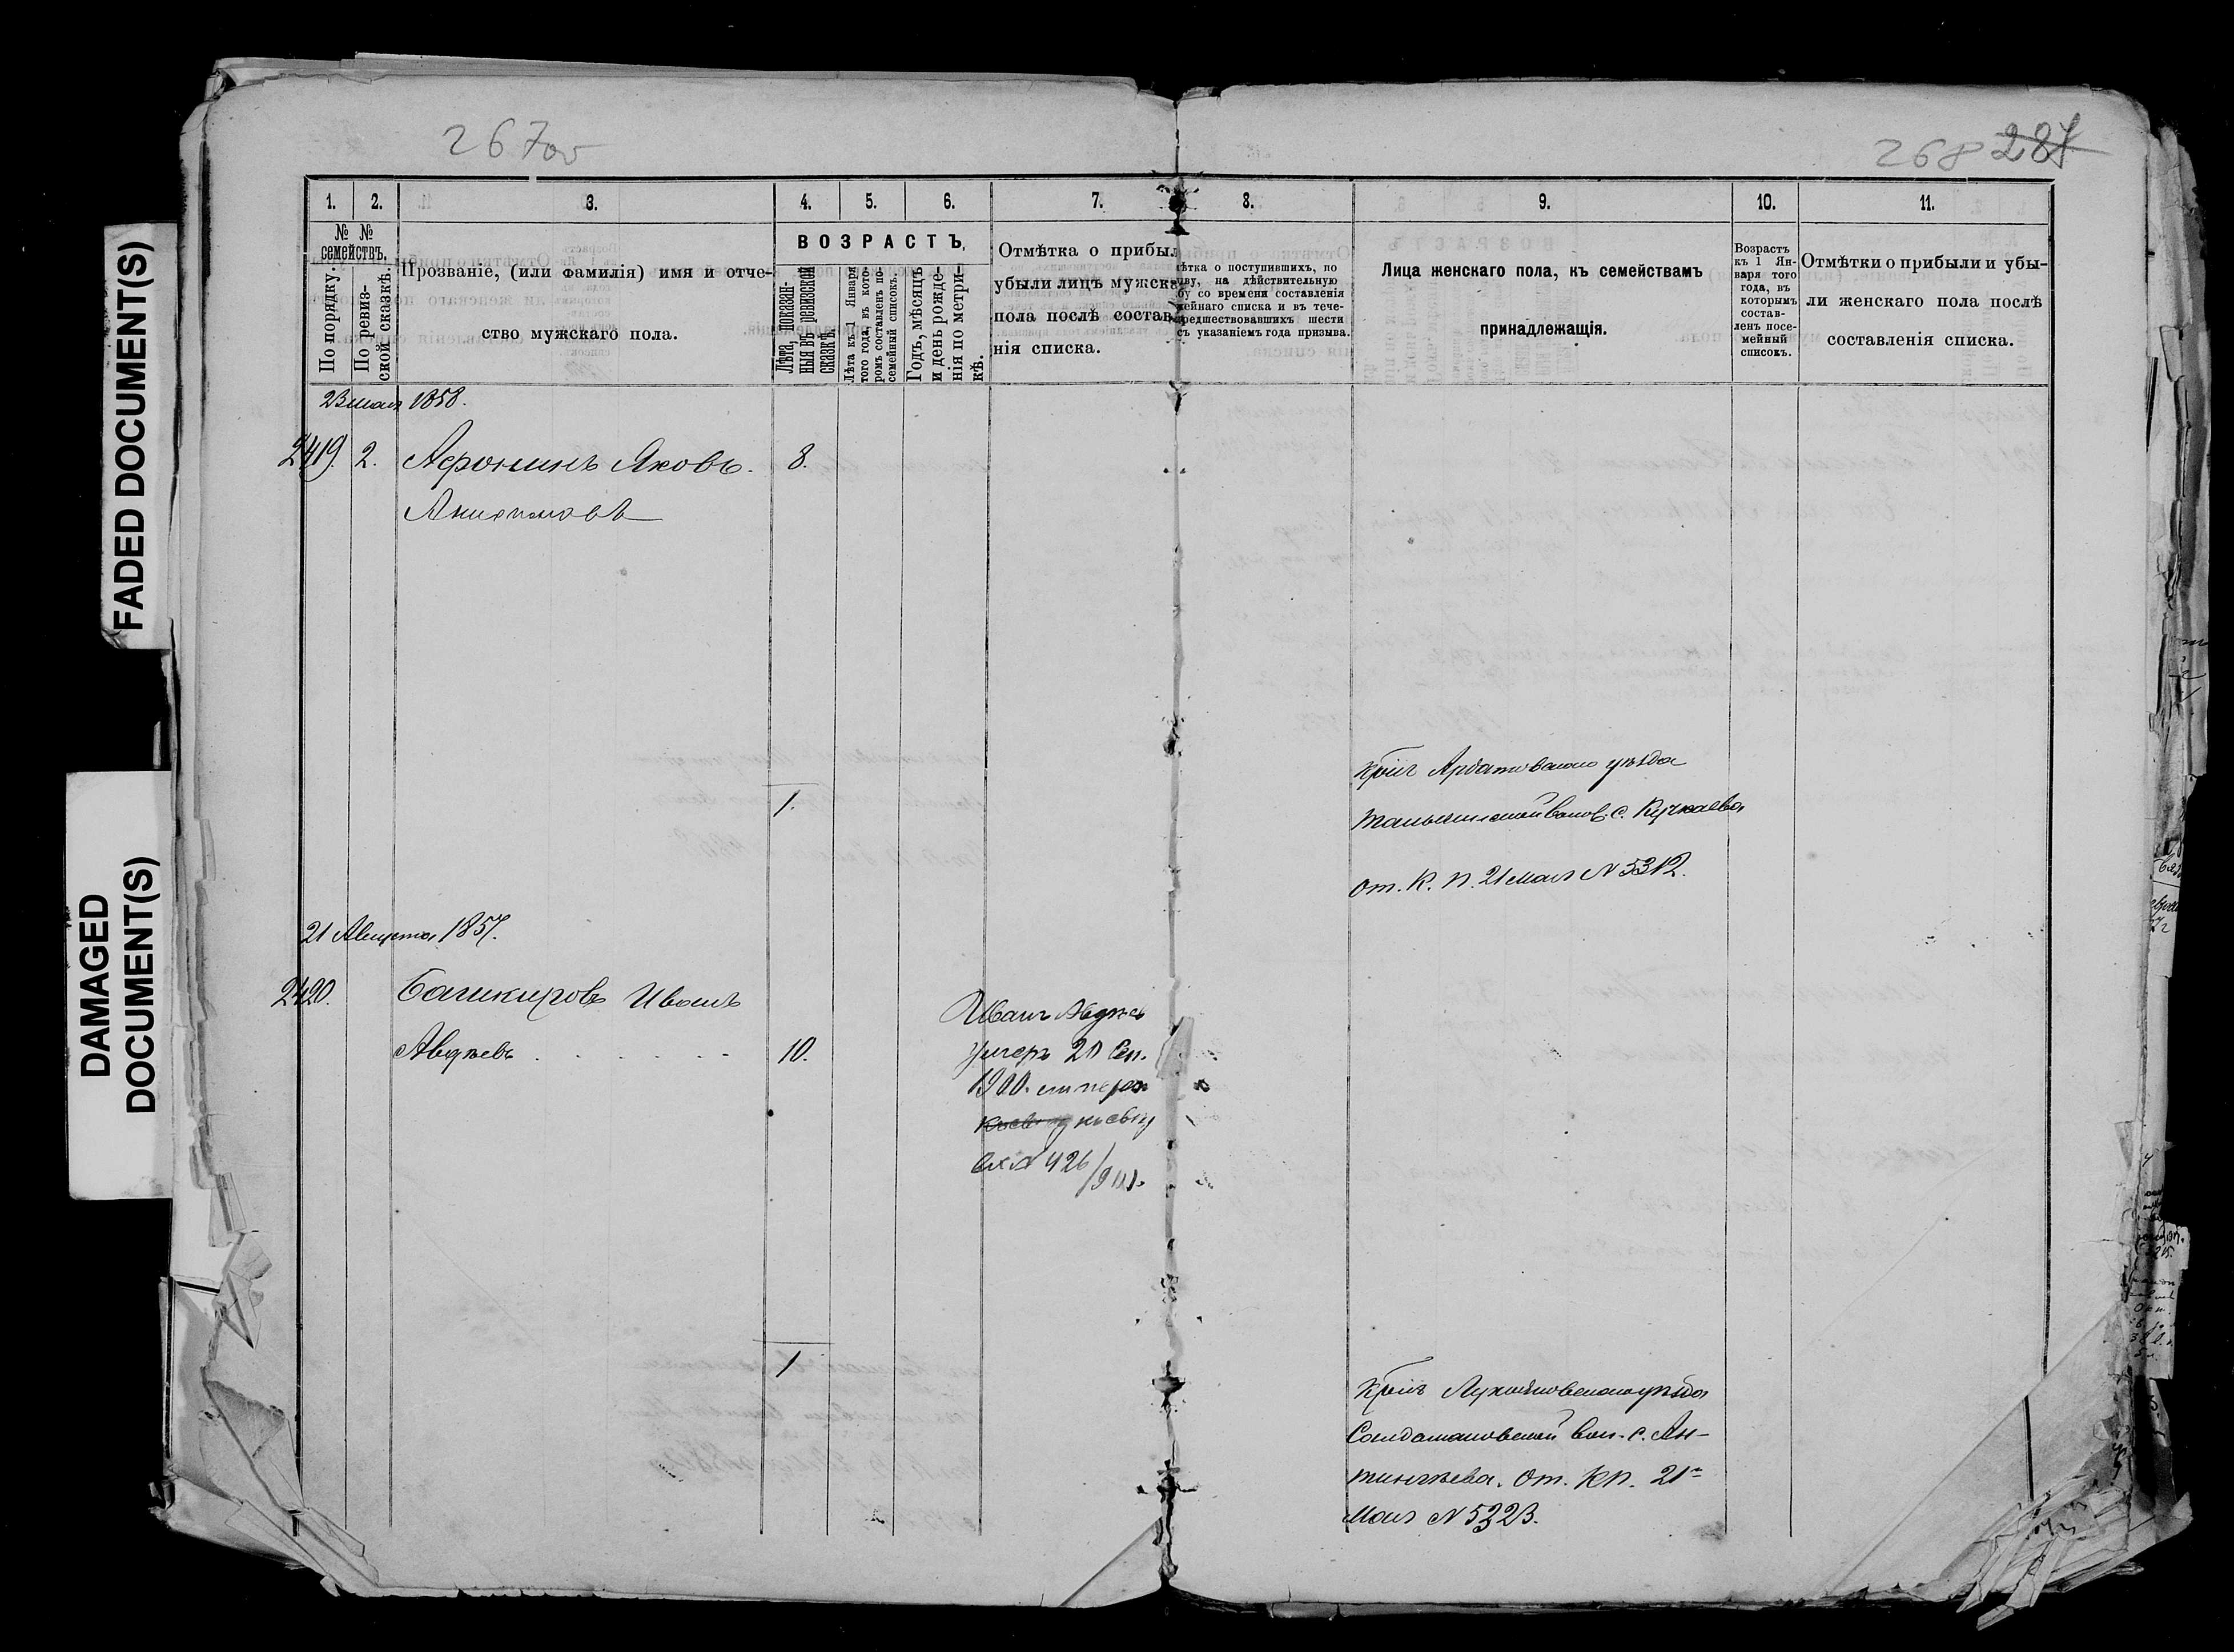 FADED DOCUMENT(S)
DAMAGED
DOCUMENT(S)
267об
268 287
1. 2. 3. 4. 5. 6. 7. 8. 9. 10. 11.
№ №
семействъ.
По порядку.
По ревиз-
ской сказкѣ.
Прозваніе, (или фамилія) имя и отче-
ство мужскаго пола.
ВОЗРАСТЪ,
Лѣта, показан-
ныя въ ревизской
сказкѣ.
Лѣта къ 1 Января
того года, въ кото-
ромъ составленъ по-
семейный списокъ.
Годъ, мѣсяцъ
и день рожде-
нія по метри-
кѣ.
Отмѣтка о прибыл
убыли лицъ мужска
пола послѣ состав
нія списка.
ѣтка о поступившихъ, по
ыву, на дѣйствительную
бу со времени составленія
мейнаго списка и въ тече-
редшествовавшихъ шести
съ указаніемъ года призыва.
Лица женскаго пола, къ семействамъ
принадлежащія.
Возрастъ
къ 1 Ян-
варя того
года, въ
которымъ
состав-
ленъ посе-
мейный
списокъ.
Отмѣтки о прибыли и убы-
ли женскаго пола послѣ
составленія списка.
23 мая 1858.
2419. 2. Афонинъ Яковъ. 8.
1.
Крѣнъ Ардатовскаго уѣзда
волос. с. Кучкаева
от. К. П. 21 мая № 5312.
21 Августа 1857.
2420. Башкировъ Иванъ
Авдѣевъ 10.
Иванъ Авдѣе
умеръ 20 Сен.
1900.
вх № 426/901.
1
Лукояновскаго уѣзда
вол. с. Ан-
от. КП. 21
Мая № 5323.